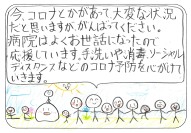 今、コロナとかがあって大変な状況
だと思いますが、がんばってください。
病院はよくお世話になったので
応援しています。手洗いや消毒、ソーシャル
ディスタンスなどのコロナ予防を心がけて
いきます。